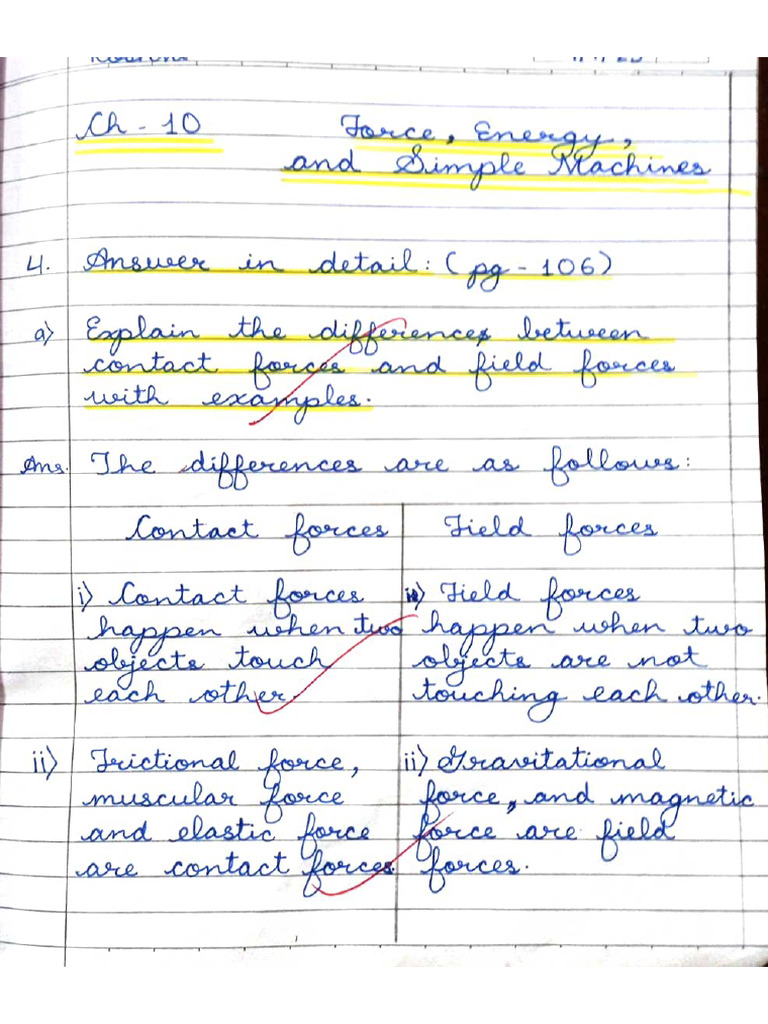 Ch - 10 Force, Energy,
and Simple Machines
4. Answer in detail: (pg - 106)
a) Explain the differences between
contact forces and field forces
with examples.
Ans. The differences are as follows:
Contact forces Field forces
i) Contact forces i) Field forces
happen when two happen when two
objects touch objects are not
each other. touching each other.
ii) Frictional force, ii) Gravitational
muscular force force, and magnetic
and elastic force force are field
are contact forces. forces.